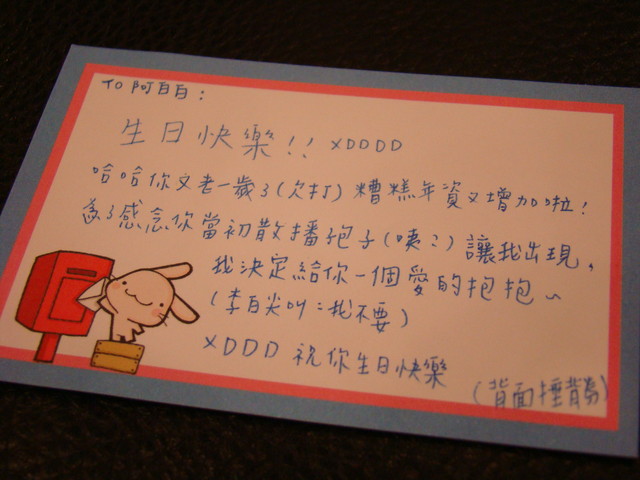 TO 阿白白：
生日快樂!! XDDDD
哈哈你又老一歲了(欠打) 糟糕年資又增加啦!
為了感念你當初散播孢子(咦?) 讓我出現，
我決定給你一個愛的抱抱~
(李白尖叫：我不要)
XDDD 祝你生日快樂
(背面捶背券)